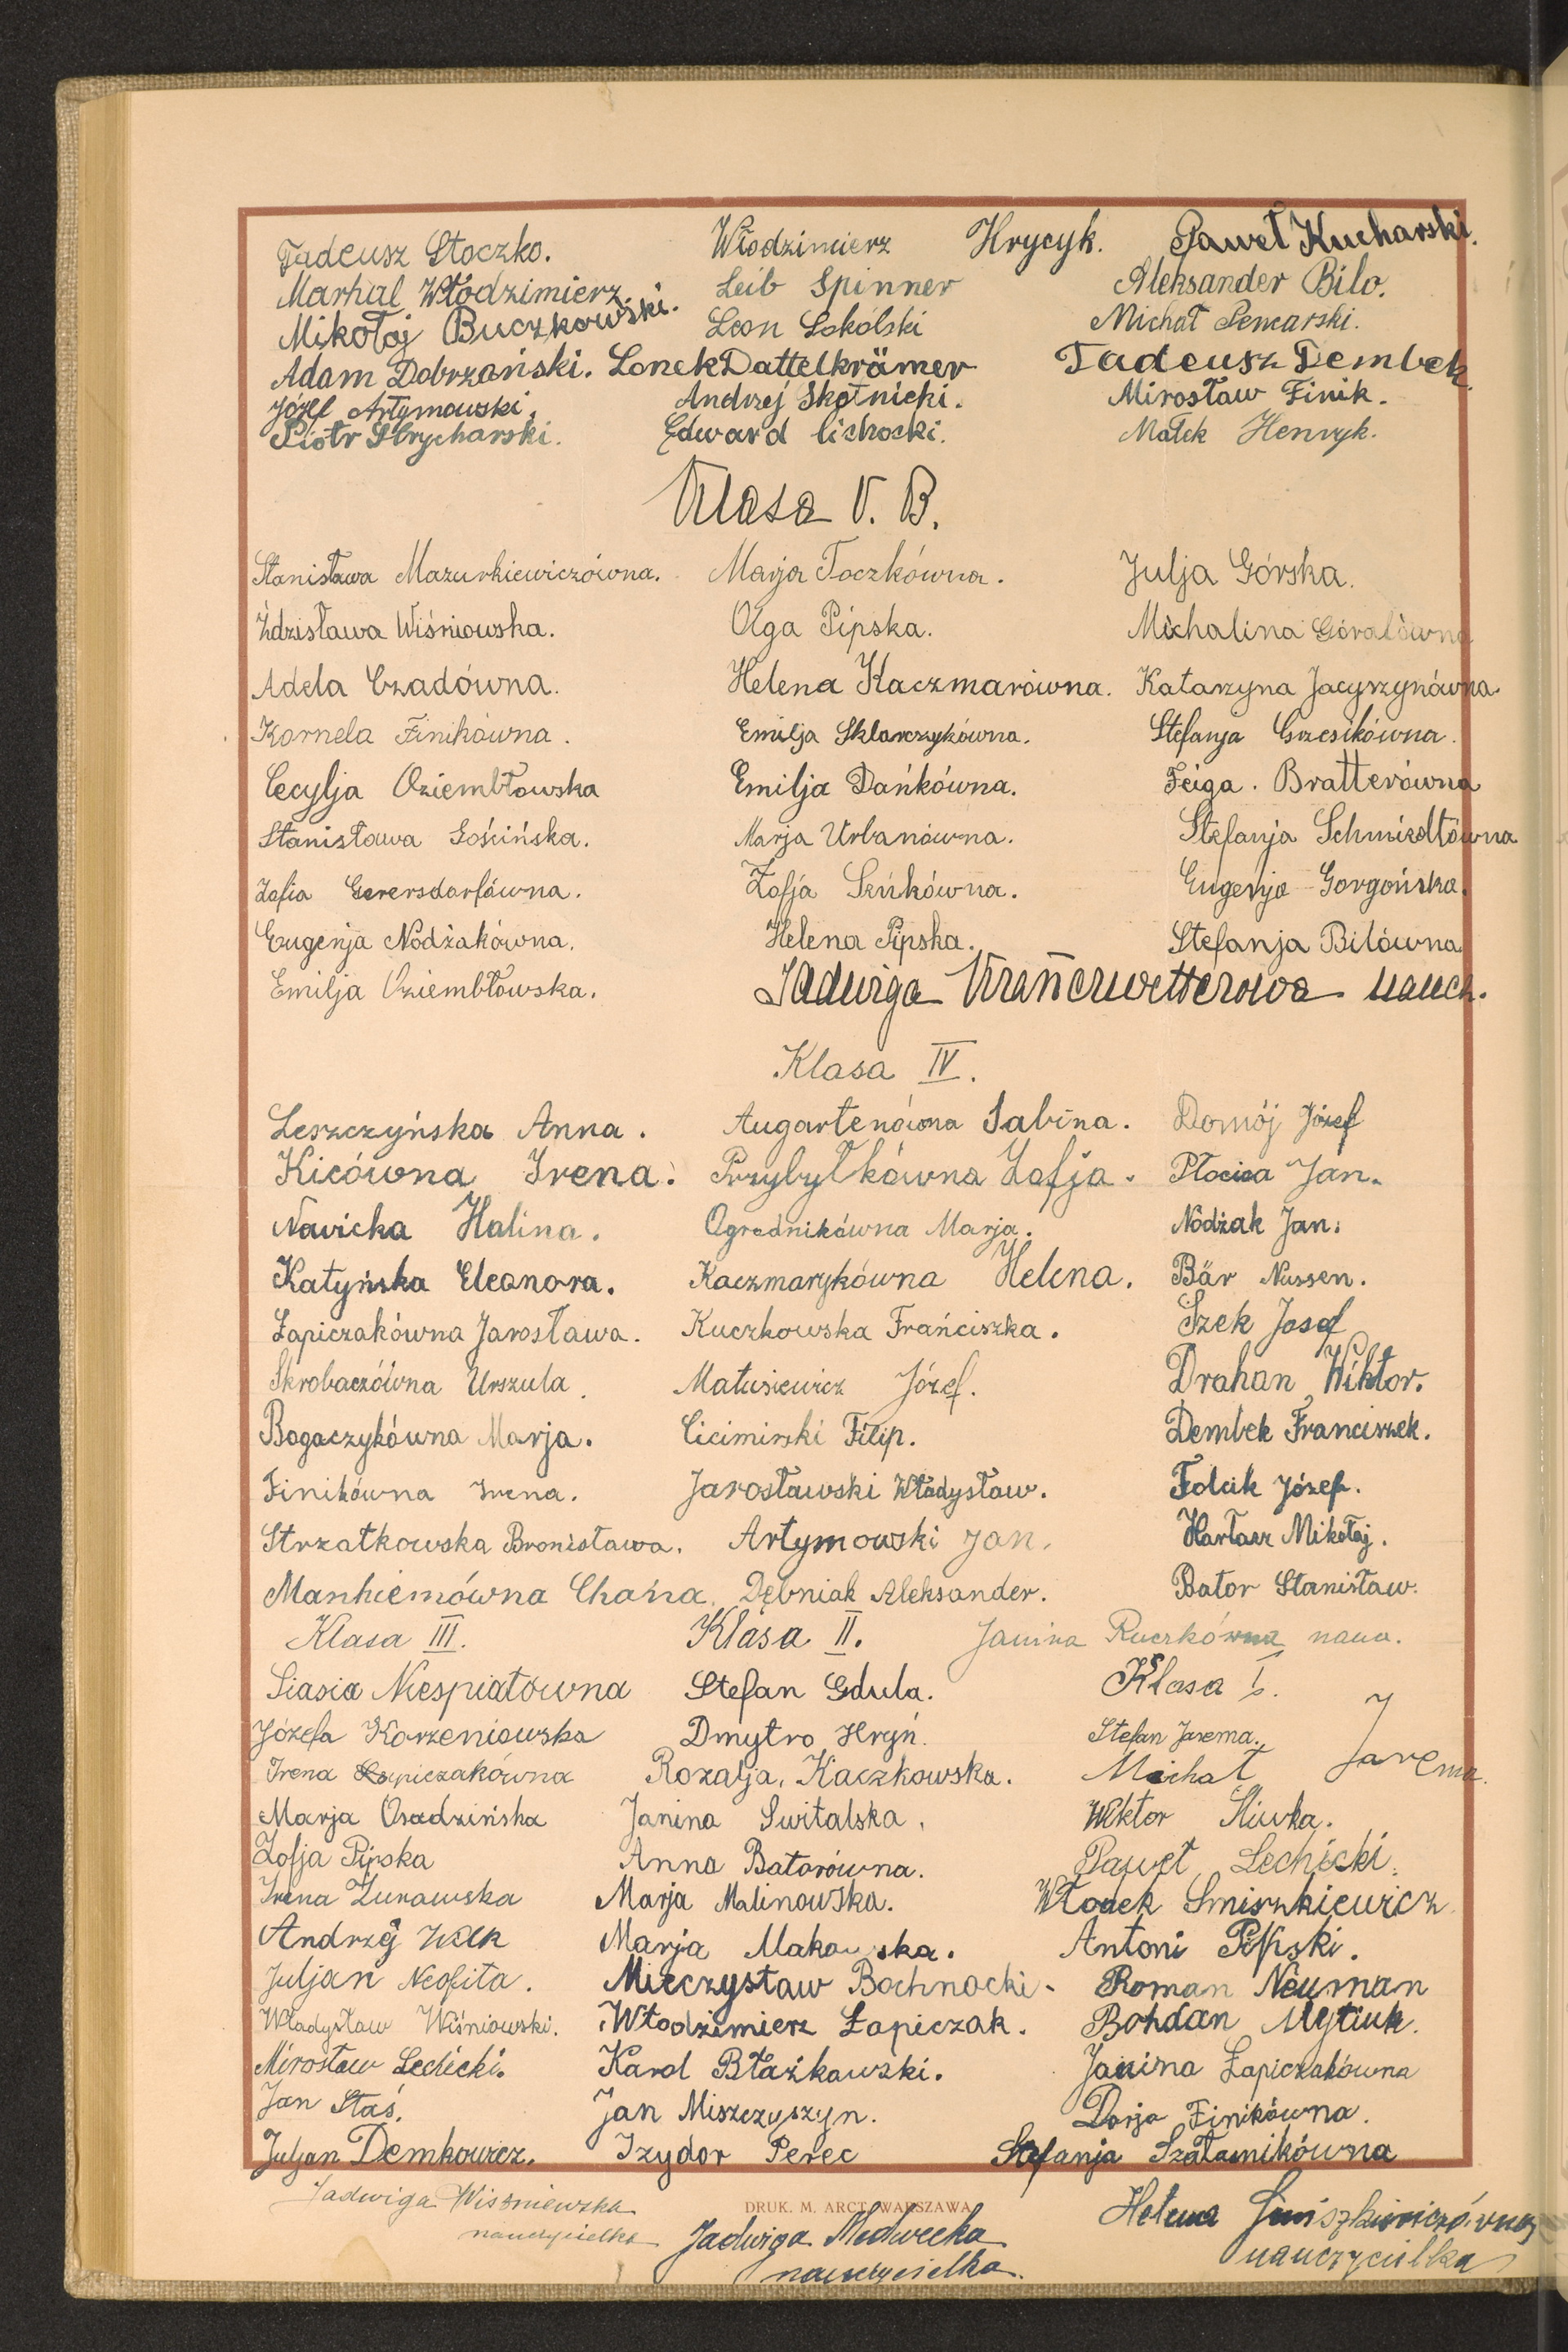 Tadeusz Stoczko. Włodzimierz Hrycyk. Paweł Kucharski.
Marhal Włodzimierz. Leib Spinner Aleksander Bilo.
Mikołaj Buczkowski. Leon Sokólski Michał
Adam Dobrzański. Lonek Dattelkrämer Tadeusz Dembek
Józef Artymowski. Andrzej Skotnicki. Mirosław Finik.
Piotr Strycharski. Edward Cichocki. Małek Henryk.
Klasa V. B.
Stanisława Mazurkiewiczówna. Marja Toczkówna. Julja Górska.
Zdzisława Wiśniowska. Olga Pipska. Michalina Góralówna
Adela Czadówna. Helena Kaczmarówna. Katarzyna Jacyszynówna.
Kornela Finikówna. Emilja Sklarczykówna. Stefanja Grzesikówna.
Cecylja Oziembłowska Emilja Dańkówna. Feiga. Bratterówna
Stanisława Gościńska. Marja Urbanówna. Stefanja Schmiedtówna
Zofia Gerersdorfówna. Zofja Seńkówna. Eugenja Gorgońska.
Eugenja Nodżakówna. Helena Pipska. Stefanja Bilówna
Emilja Oziembłowska. Jadwiga nauch.
Klasa IV.
Leszczyńska Anna. Augartenówna Sabina. Domój Józef
Kicówna Irena. Przybyłkówna Zofja. Płocica Jan.
Navicka Halina. Ogrodnikówna Marja. Nodżak Jan.
Katyńska Eleonora. Kaczmarykówna Helena. Bär Nussen.
Łapiczakówna Jarosława. Kuczkowska Frańciszka. Szek Josef
Skrobaczówna Urszula. Matusiewicz Józef. Drahan Wiktor.
Bogaczykówna Marja. Cicimirski Filip. Dembek Franciszek.
Finikówna Irena. Jarosławski Władysław. Folak Józef.
Strzałkowska Bronisława. Artymowski Jan. Harłacz Mikołaj.
Manhiemówna Chana. Dębniak Aleksander. Bator Stanisław.
Klasa III. Klasa II. Janina Ruczkówna nauc.
Siasia Niespiałówna Stefan Gdula. Klasa I.
Józefa Korzeniowska Dmytro Hryń. Stefan Jarema.
Irena Łapiczakówna Rozalja, Kaczkowska. Michał Jarema.
Marja Osadzińska Janina Switalska. Wiktor Śliwka.
Zofja Pipska Anna Batorówna. Paweł Lechicki.
Irena Żurawska Marja Malinowska. Włodek Smiszkiewicz
Andrzej Wilk Marja Makowska. Antoni Pipski.
Juljan Neofita. Mieczysław Bochnacki. Roman Neuman
Władysław Wiśniowski. Włodzimierz Łapiczak. Bohdan Mytiuk.
Mirosław Lechicki. Karol Błażkowski. Janina Łapiczakówna
Jan Staś. Jan Miszczyszyn. Darja Finikówna.
Juljan Demkowicz. Izydor Perec Stefanja Szałamikówna
Jadwiga Wiszniewska DRUK. M. ARCT, WARSZAWA Helena Smiszkiewiczówna
nauczycielka Jadwiga Medwecka nauczycielka
nauczycielka.